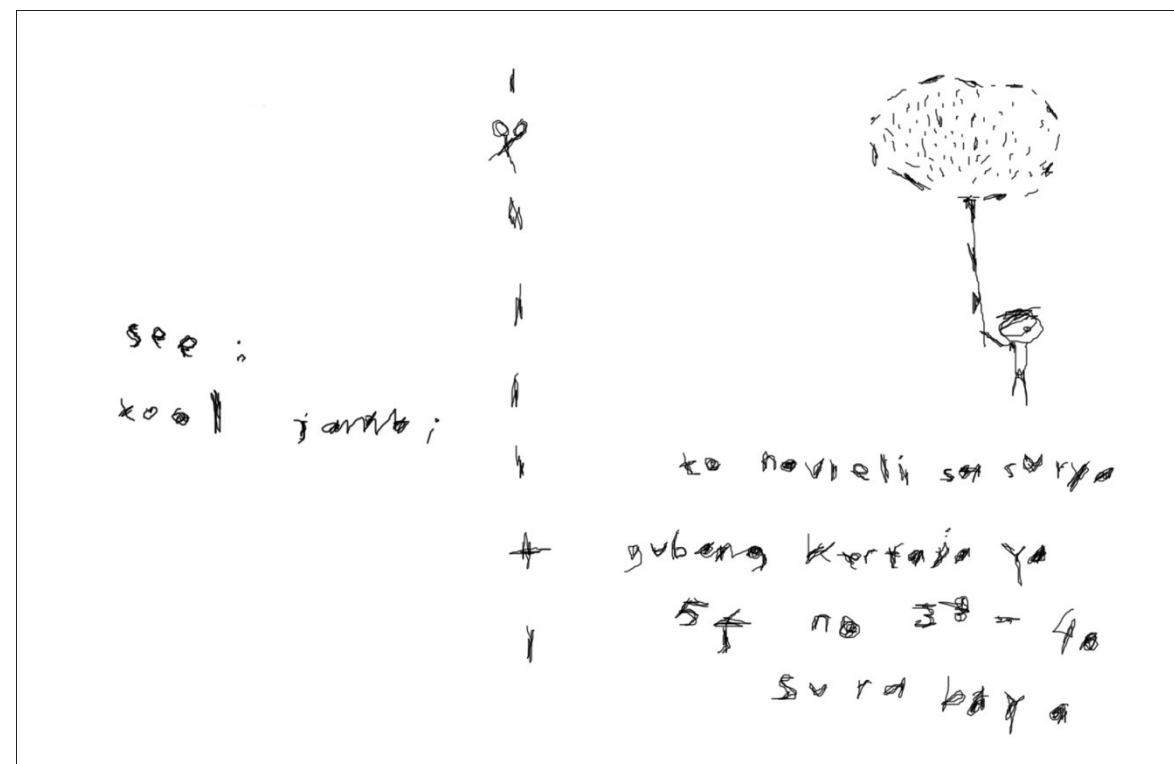 see :
kool jambi
to novieli sa surya
gubeng kertajaya
5f no 38 - 40
surabaya